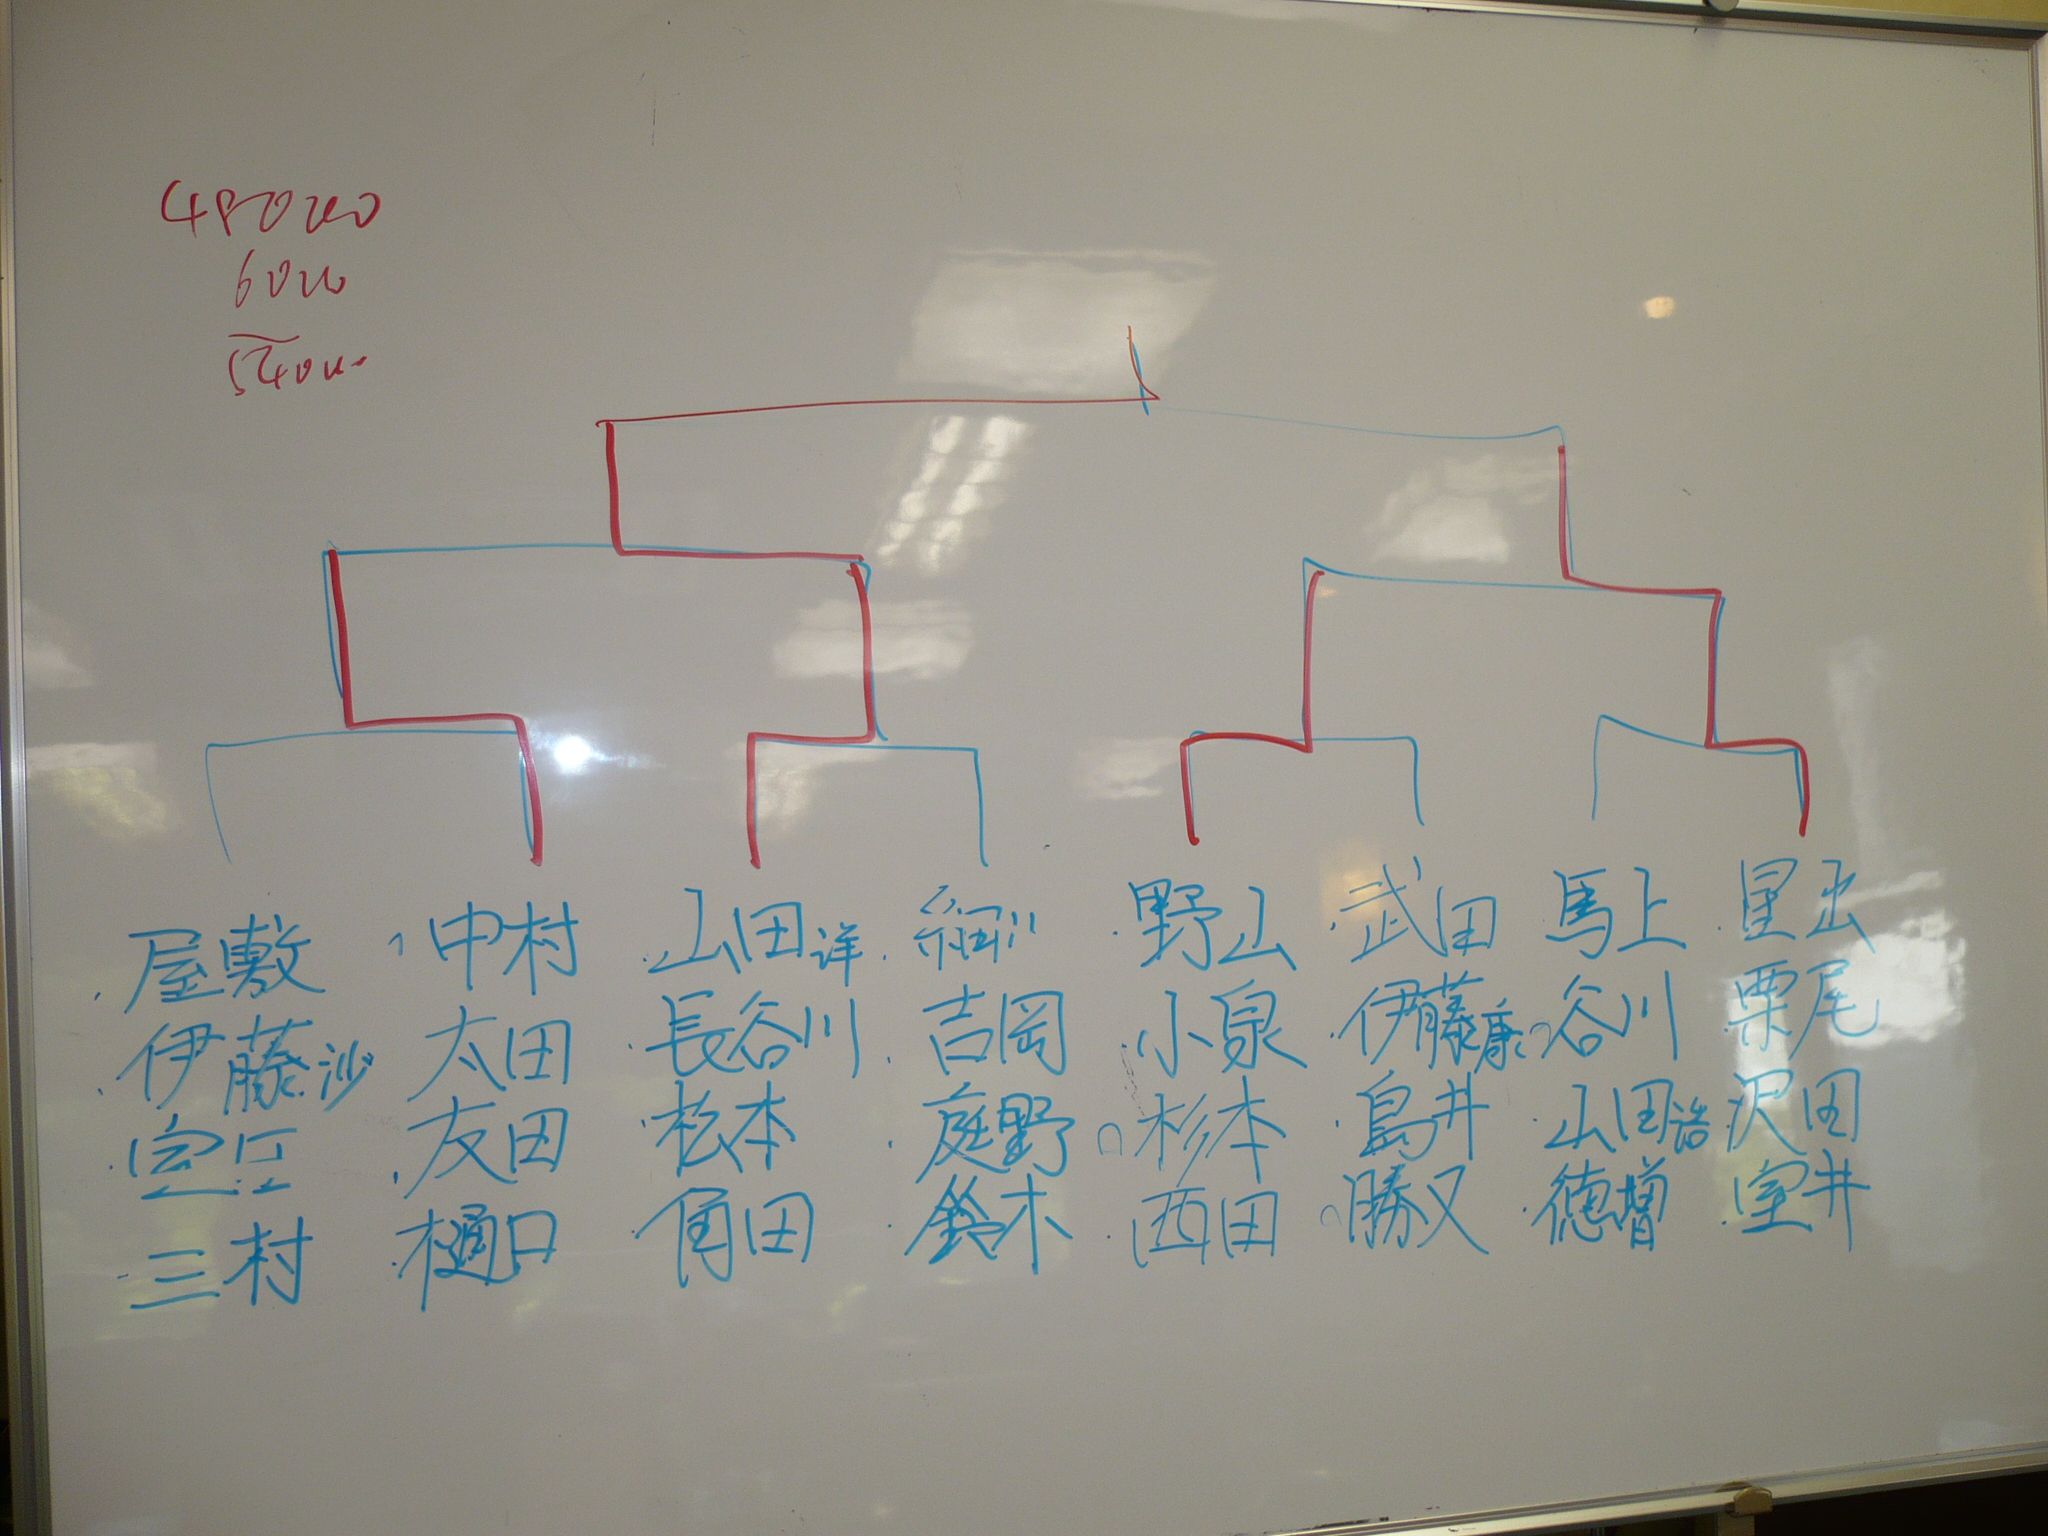 屋敷 中村 山田洋 細川 野山 武田 馬上 星出
伊藤沙 太田 長谷川 吉岡 小泉 伊藤康 谷川 栗尾
室江 友田 松本 庭野 杉本 島井 山田 沢田
三村 樋口 角田 鈴木 西田 勝又 徳増 室井